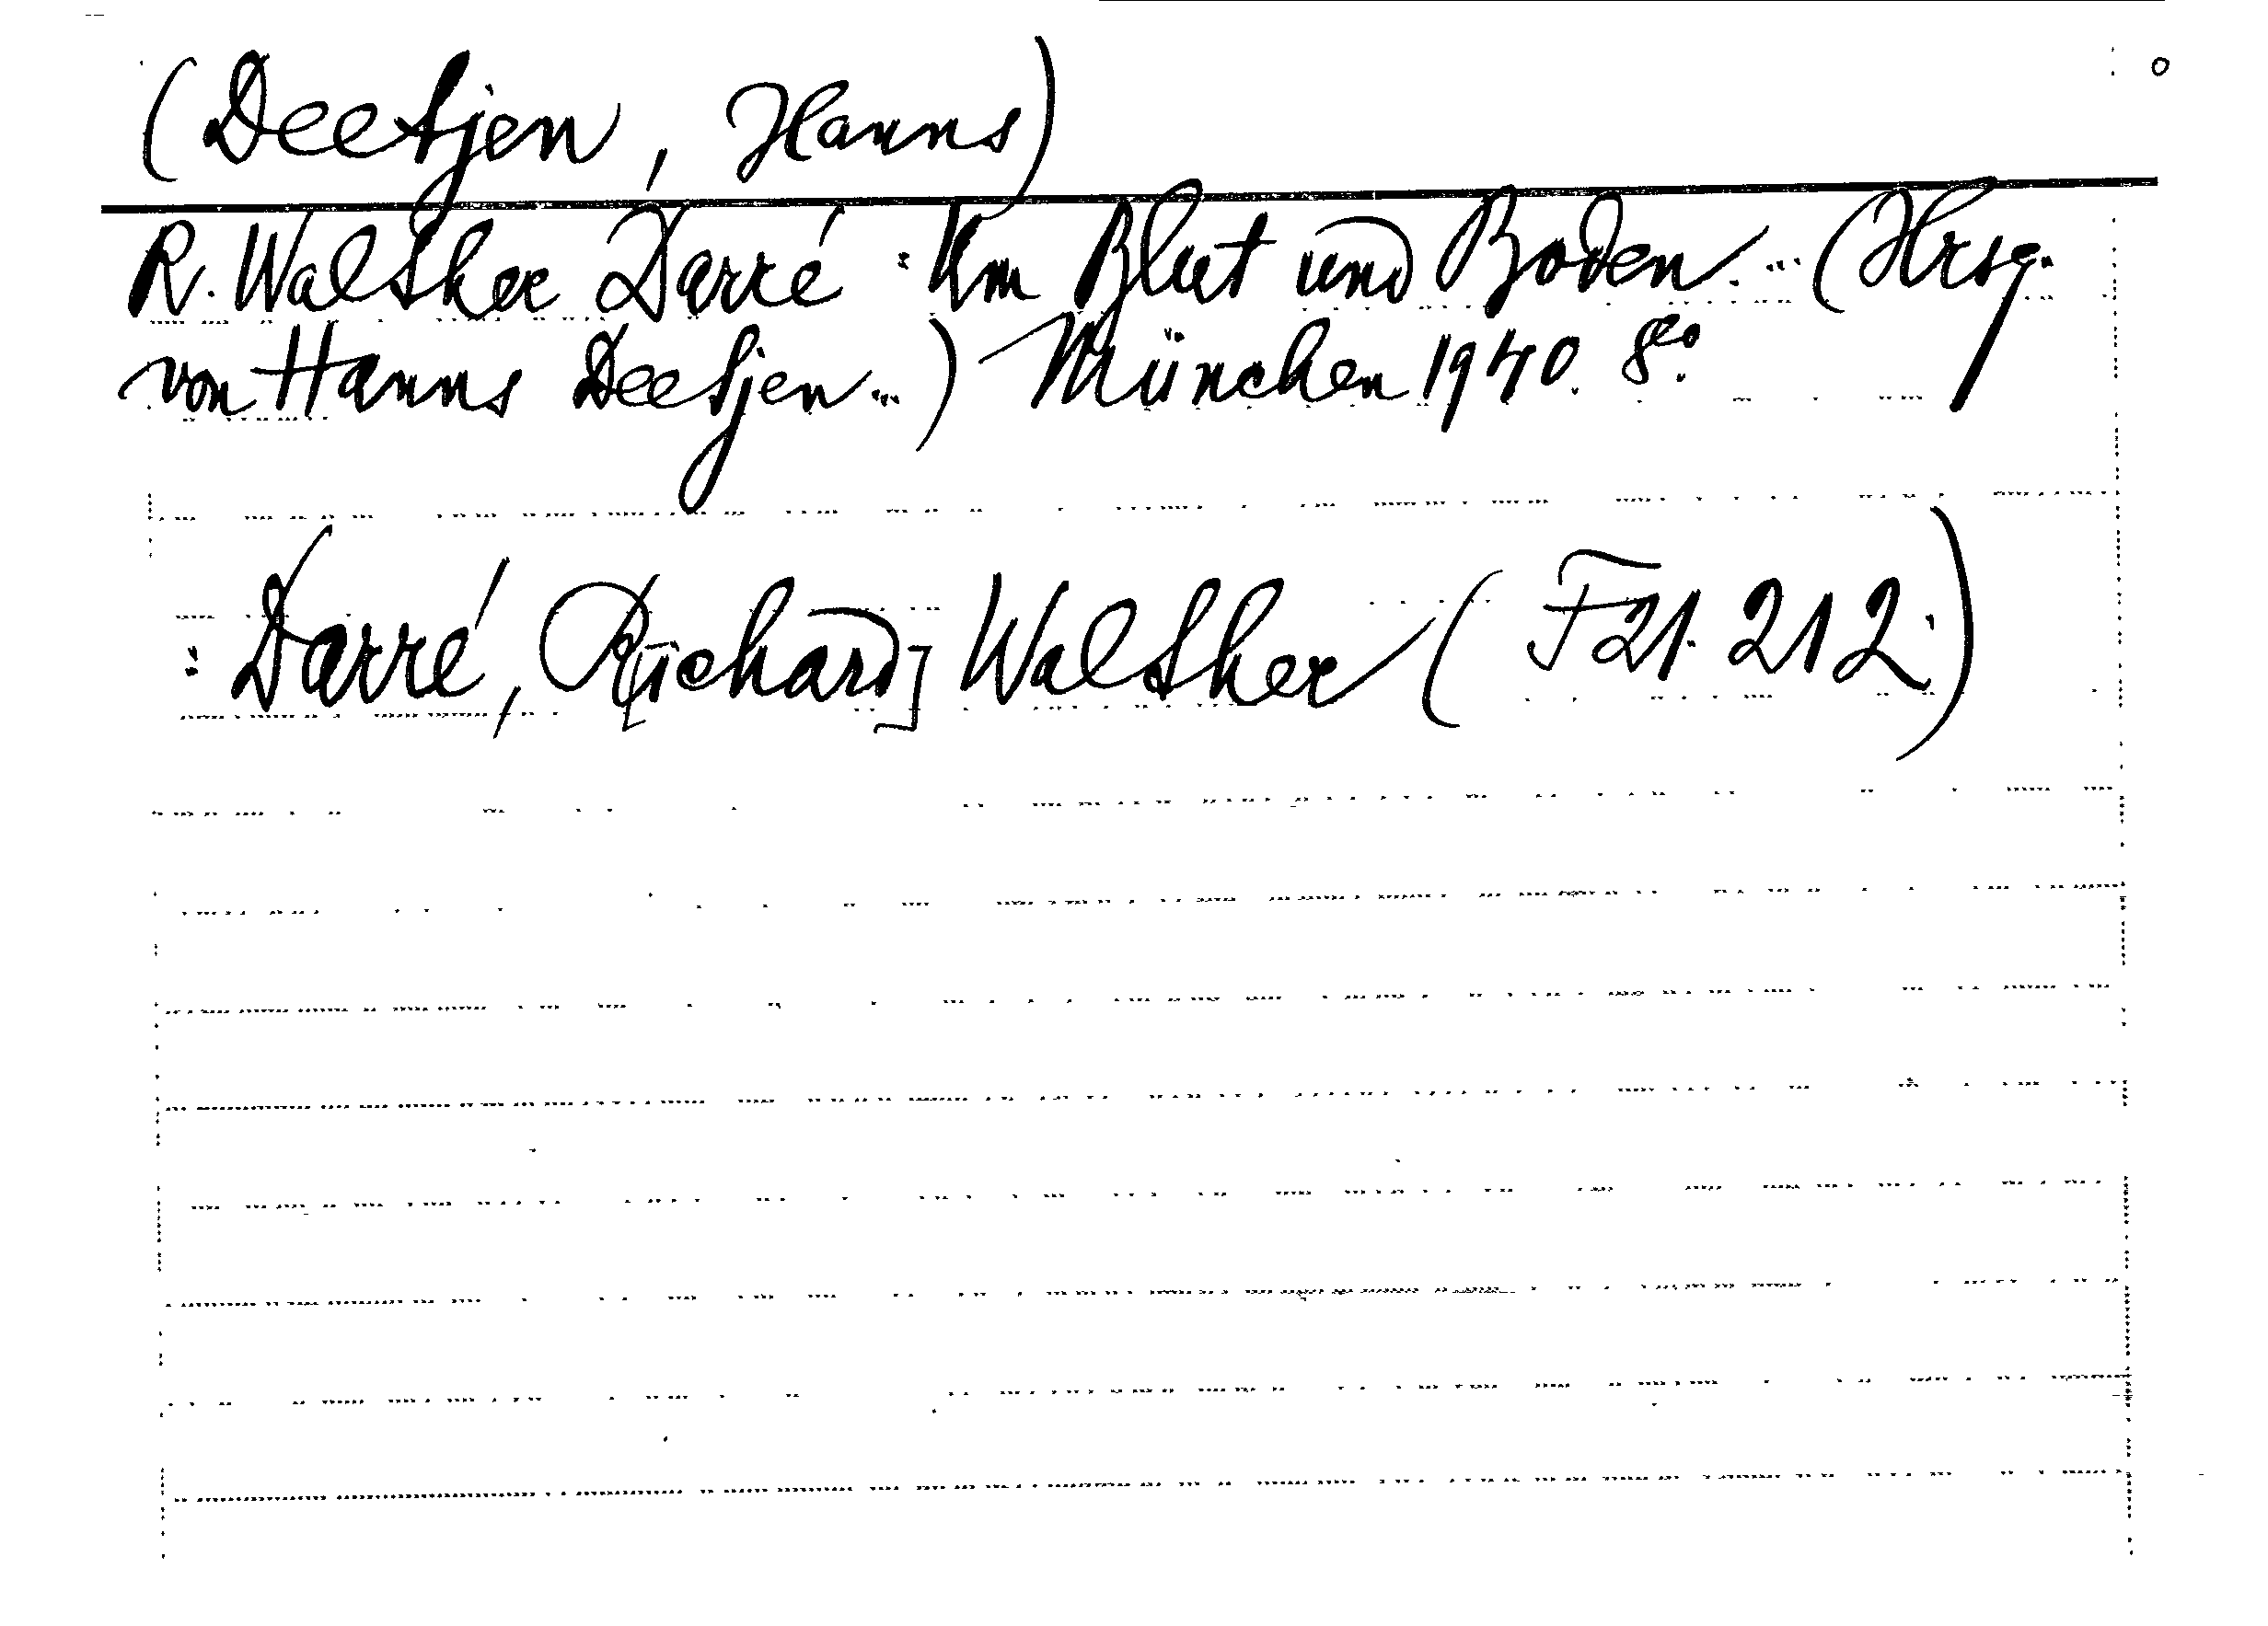 (Deetjen, Hanns)
R. Walther Darré: Um Blut und Boden... (Hrsg.
von Hanns Deetjen...) München 1940. 8°.
: Darré, R[ichard] Walther (F 21. 212.)